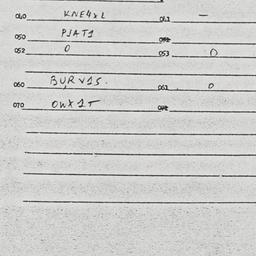 040 KNE4XL 041 —
050 PJAT1
052 0 053 0
060 BURV1S. 061 0
070 OWX1T